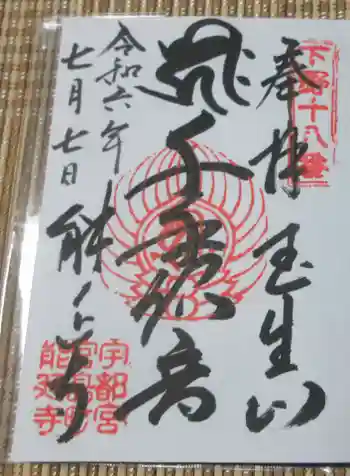 奉拝
玉生山
千手観音
令和六年
七月七日
能延寺
下野十八番
宇都宮
宮島町
能延寺